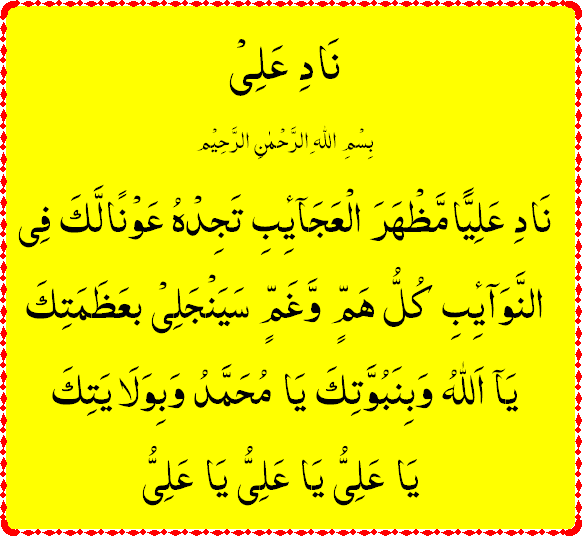 نَادِ عَلِیْ
بِسْمِ اللّٰہِ الرَّحْمٰنِ الرَّحِیْمِ
نَادِ عَلِیًّا مَّظْهَرَ الْعَجَآئِبِ تَجِدْهُ عَوْنًا لَّكَ فِی
النَّوَآئِبِ كُلُّ هَمٍّ وَّغَمٍّ سَیَنْجَلِیْ بِعَظَمَتِكَ
یَآ اَللّٰهُ وَبِنَبُوَّتِكَ یَا مُحَمَّدُ وَبِوَلَایَتِكَ
یَا عَلِیُّ یَا عَلِیُّ یَا عَلِیُّ